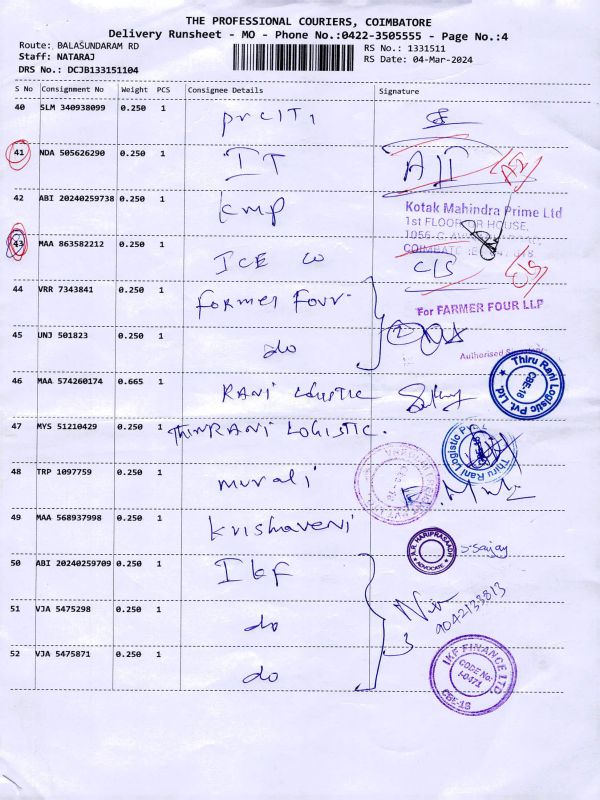 THE PROFESSIONAL COURIERS, COIMBATORE
Delivery Runsheet - MO - Phone No.:0422-3505555 - Page No.:4
Route: BALASUNDARAM RD
RS No.: 1331511
Staff: NATARAJ
RS Date: 04-Mar-2024
DRS No.: DCJB133151104
S No Consignment No Weight PCS Consignee Details Signature
40 SLM 340938099 0.250 1
41 NDA 505626290 0.250 1 IT AIT
42 ABI 20240259738 0.250 1 kmp
Kotak Mahindra Prime Ltd
1st FLOOR HOUSE,
43 MAA 863582212 0.250 1 ICE CIS
44 VRR 7343841 0.250 1 Former Four
For FARMER FOUR LLP
45 UNJ 501823 0.250 1 do 2
Authorised
46 MAA 574260174 0.665 1 RANI LOGISTIC
Thiru Rani Logistic Pvt. Ltd.
CBE-18
47 MYS 51210429 0.250 1 THIRURANI LOGISTIC.
Thiru Rani Logistic
48 TRP 1097759 0.250 1 murali
49 MAA 568937998 0.250 1 krishaveni
A.R. HARIPRASAADH
ADVOCATE
S. Sanjay
50 ABI 20240259709 0.250 1 IkF
51 VJA 5475298 0.250 1 do 3
9042133813
52 VJA 5475871 0.250 1 do
IKF FINANCE LTD.
CODE No:
CBE-18